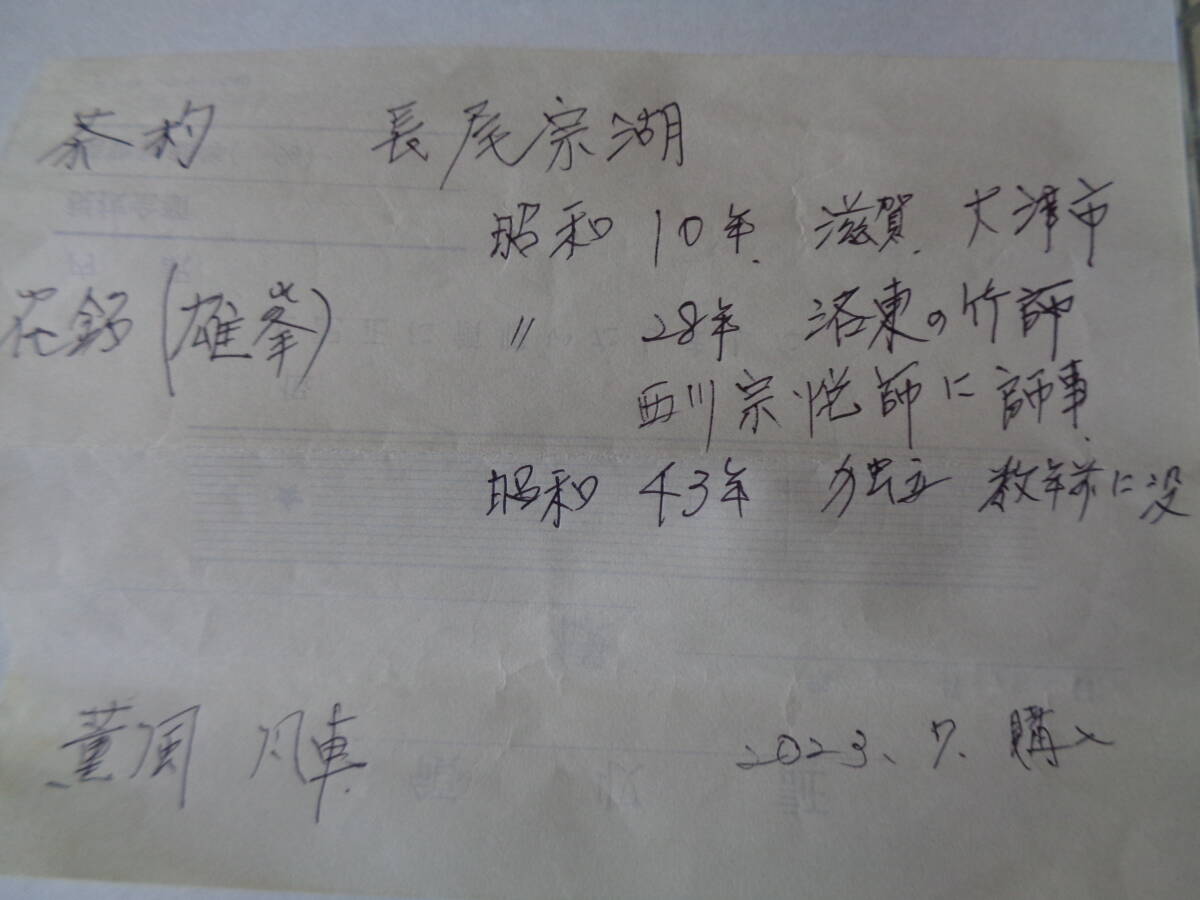 茶杓 長尾宗湖
昭和 10年. 滋賀. 大津市
花銘(雄峯)
〃 28年 洛東の竹師
西川宗悦師に師事.
昭和 43年 独立 数年前に没
薫風 風車
2023、7. 購入